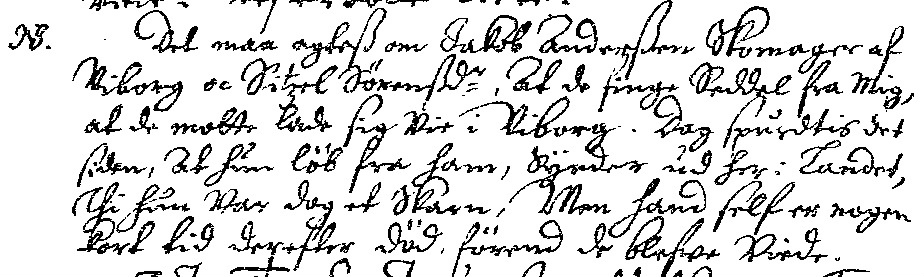 NB. Det maa agtess om Jakob Anderssen Skomager af
Viborg oc Sitzel Sørenssdr, At de finge Seddel fra Mig,
at de motte lade sig Vie i Viborg. Dog spurdtis det
siden, At hun løb fra ham, Synder ud her i Landet,
Thi hun Var dog et Skarn, Men Hand self er nogen
kort tid derefter död, förend de blefve Viede.